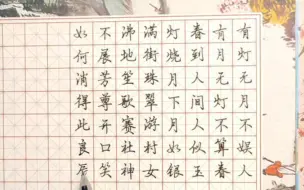 有灯无月不娱人
有月无灯不算春
春到人间人似玉
灯烧月下月如银
满街珠翠游村女
沸地笙歌赛社神
不展芳尊开口笑
如何消得此良辰